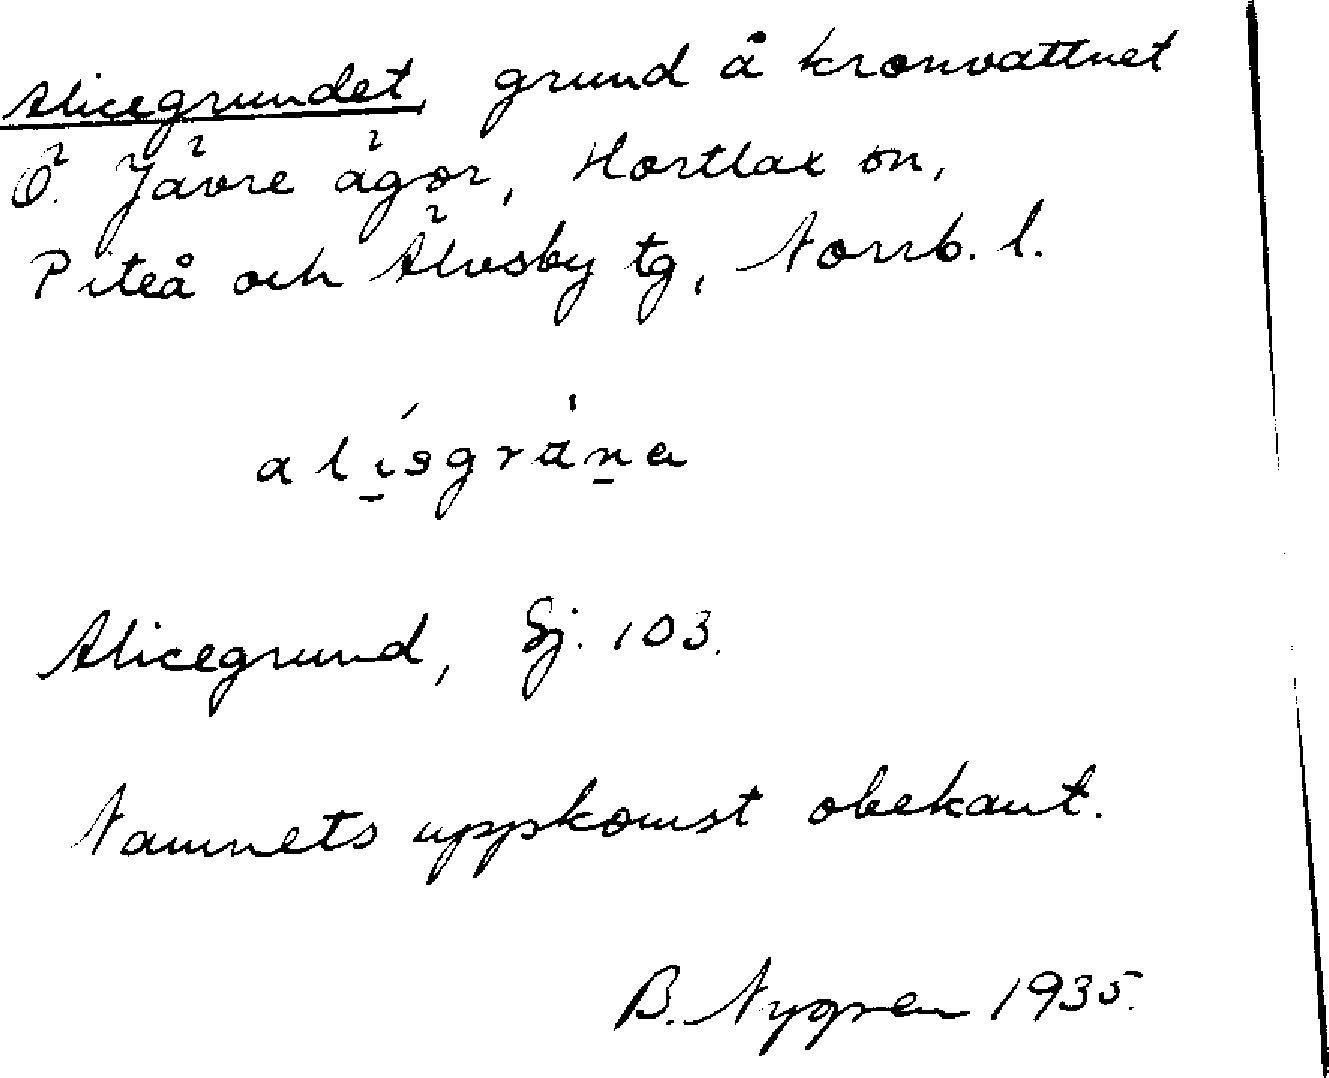 Alicegrundet, grund å kronvattnet
Ö. Jävre ägor, Hortlax sn,
Piteå och Älvsby tg, Norrb. l.
alisgräna
Alicegrund, Sj. 103.
Namnets uppkomst obekant.
B. Nygren 1935.